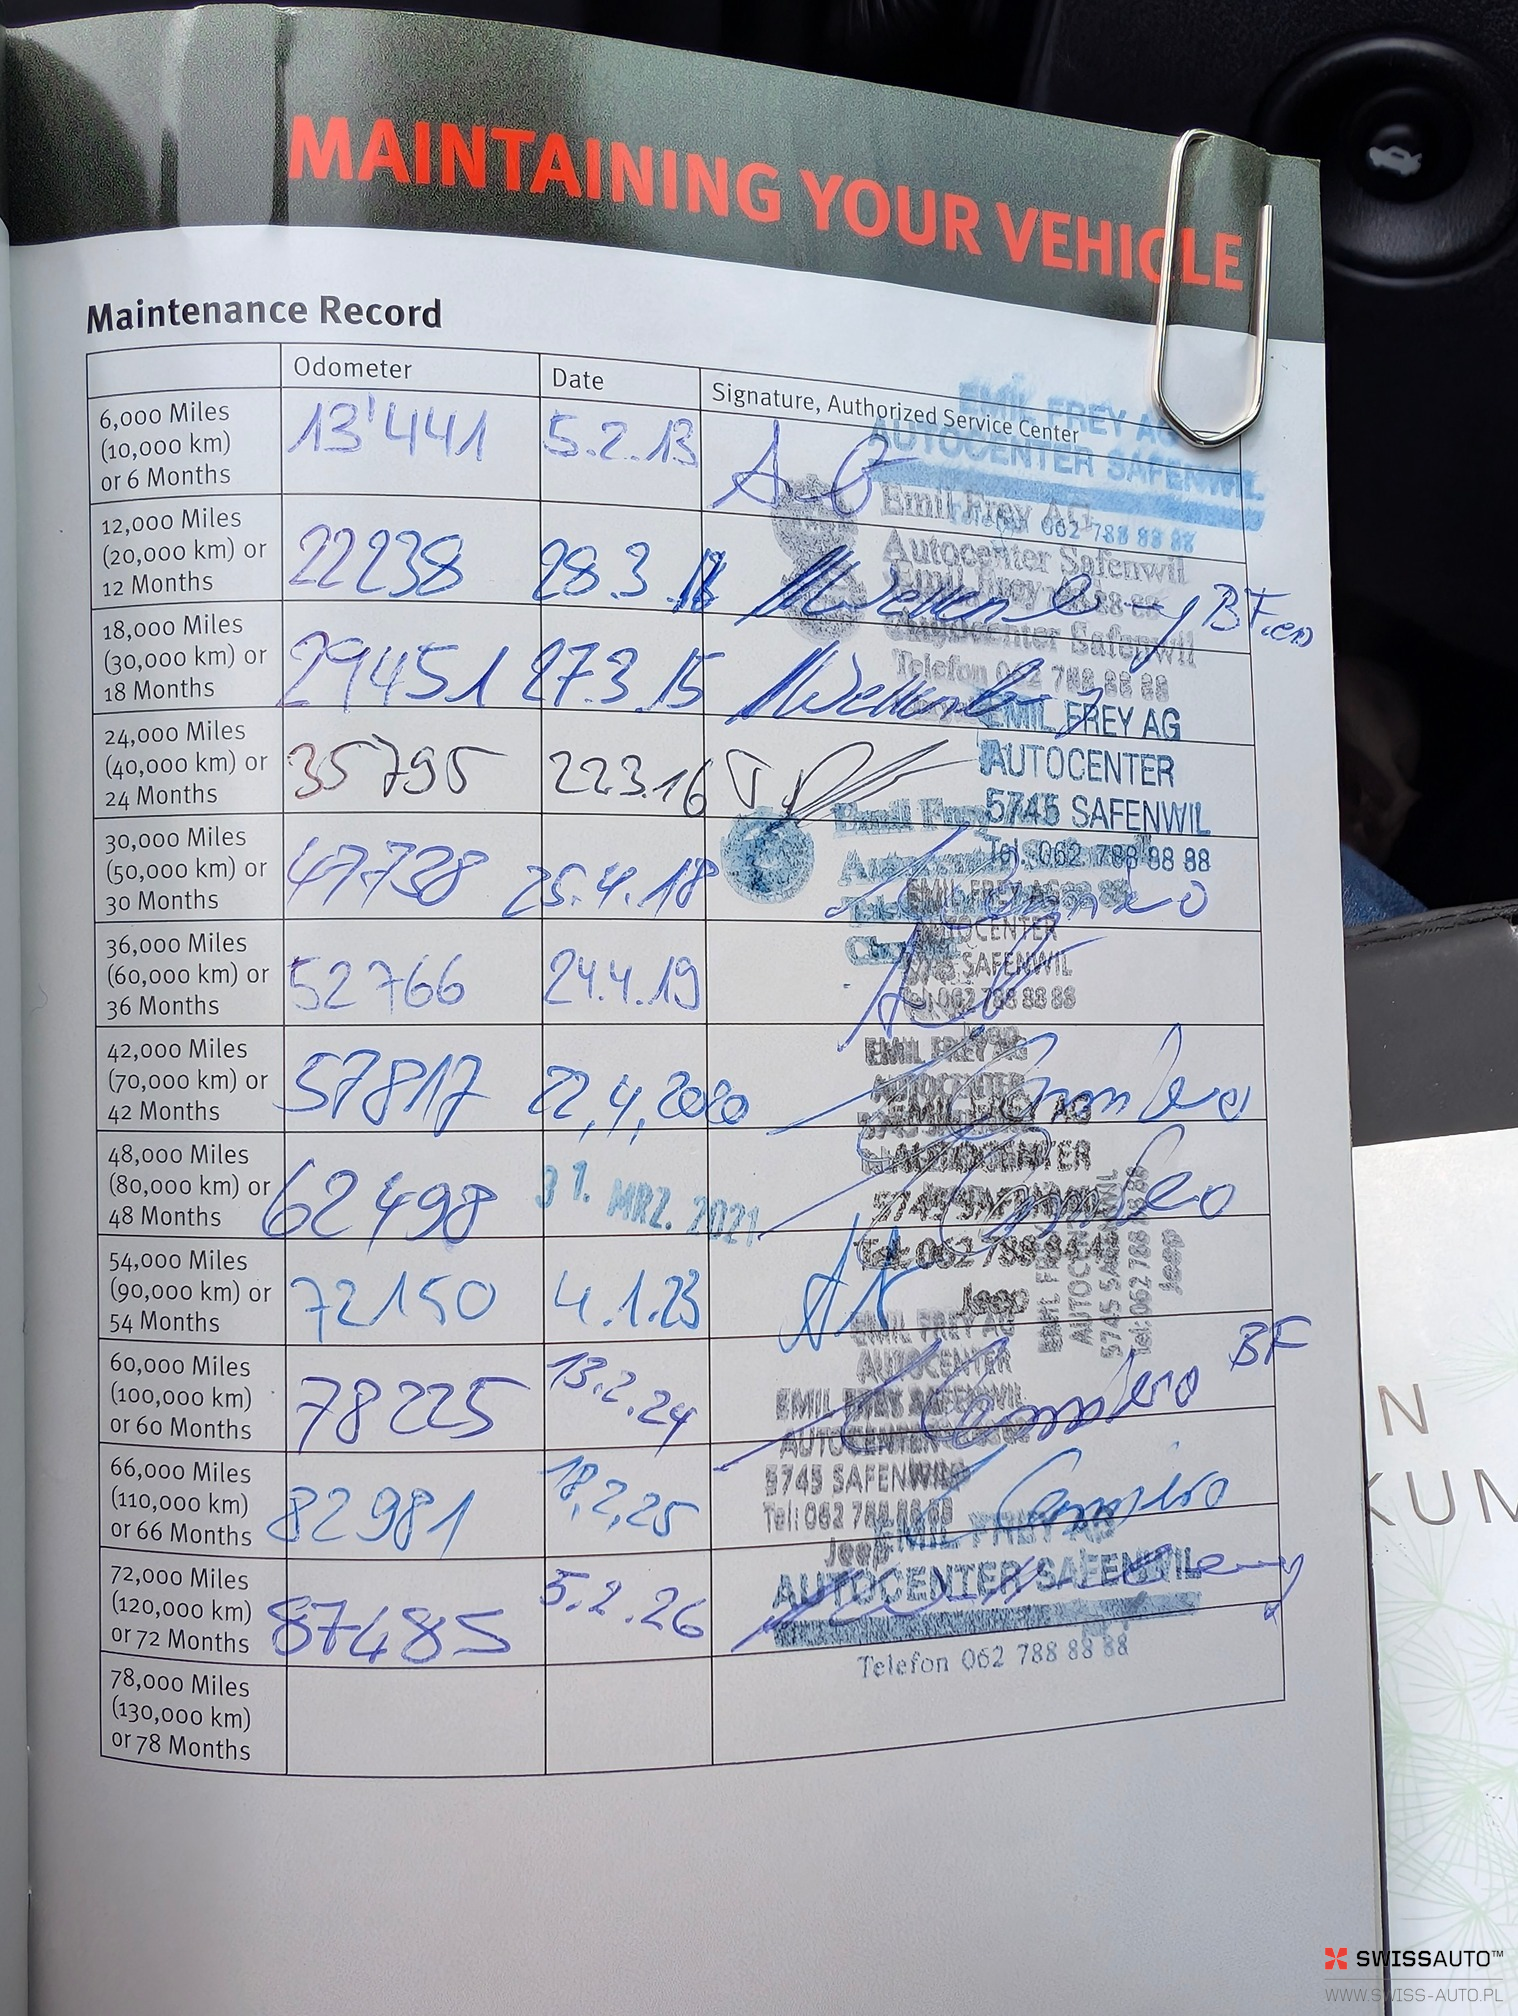 MAINTAINING YOUR VEHICLE
Maintenance Record
Odometer
Date
Signature, Authorized Service Center
6,000 Miles
(10,000 km)
or 6 Months
13'441
5.2.13
EMIL FREY AG
AUTOCENTER SAFENWIL
062 788 88 88
12,000 Miles
(20,000 km) or
12 Months
22238
28.3
Emil Frey AG
Autocenter Safenwil
BF
18,000 Miles
(30,000 km) or
18 Months
29451
27.3.15
Emil Frey
Autocenter Safenwil
Telefon 062 788 88 88
24,000 Miles
(40,000 km) or
24 Months
35795
22.3.16
EMIL FREY AG
AUTOCENTER
5745 SAFENWIL
Tel. 062 788 88 88
30,000 Miles
(50,000 km) or
30 Months
47738
25.4.18
Emil Frey
36,000 Miles
(60,000 km) or
36 Months
52766
24.4.19
EMIL FREY AG
AUTOCENTER
5745 SAFENWIL
Tel: 062 788 88 88
42,000 Miles
(70,000 km) or
42 Months
57817
22,4,2020
Jeep
EMIL FREY AG
AUTOCENTER
48,000 Miles
(80,000 km) or
48 Months
62498
31. MRZ. 2021
EMIL FREY AG
AUTOCENTER
5745 SAFENWIL
Jeep
54,000 Miles
(90,000 km) or
54 Months
72150
4.1.23
EMIL FREY AG
AUTOCENTER
5745 SAFENWIL
Tel: 062 788 88 88
Jeep
60,000 Miles
(100,000 km)
or 60 Months
78225
13.2.24
EMIL FREY AG
AUTOCENTER
BF
66,000 Miles
(110,000 km)
or 66 Months
82981
18,2,25
EMIL FREY
AUTOCENTER
5745 SAFENWIL
Tel: 062 788 88 88
Jeep
72,000 Miles
(120,000 km)
or 72 Months
87485
5.2.26
EMIL FREY AG
AUTOCENTER SAFENWIL
Telefon 062 788 88 88
78,000 Miles
(130,000 km)
or 78 Months
N
KUM
SWISSAUTO™
WWW.SWISS-AUTO.PL